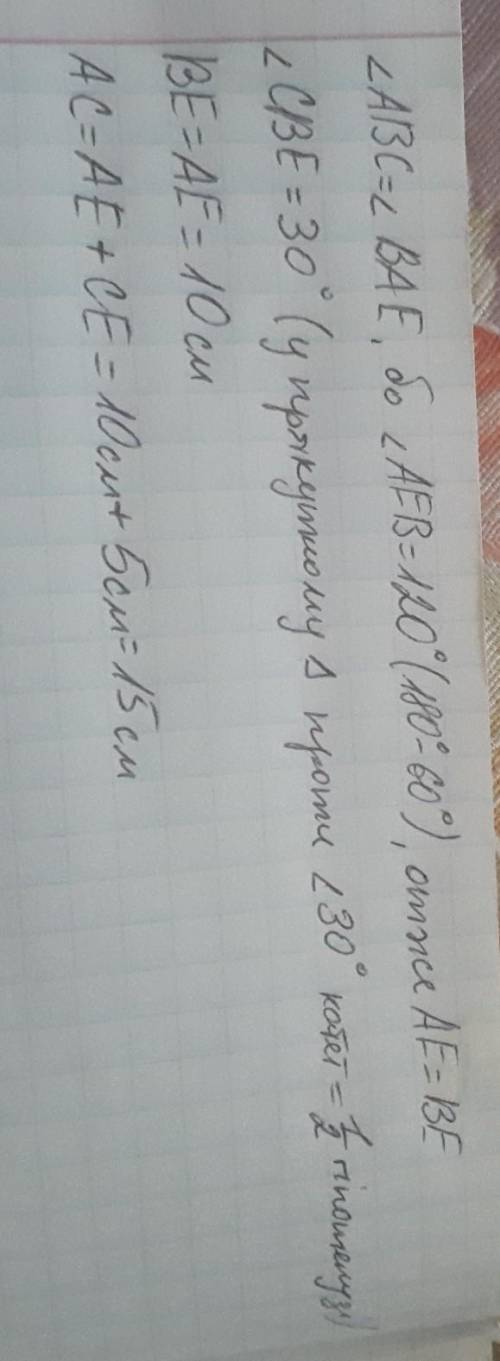 ∠ABC=∠BAE, бо ∠AEB=120°(180°-60°), отже AE=BE
∠CBE=30° (у прякутному Δ проти ∠30° катет = 1/2 гіпотенузи)
BE=AE=10см
AC=AE+CE=10см+5см=15см